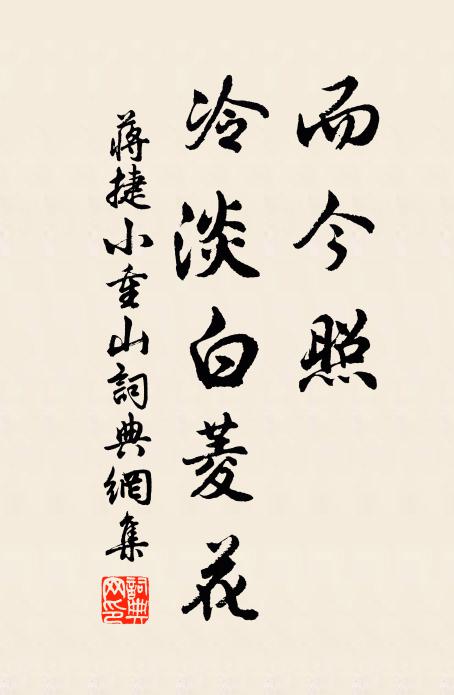 而今照
冷淡白菱花
蔣捷小重山詞典網集
詞典网印